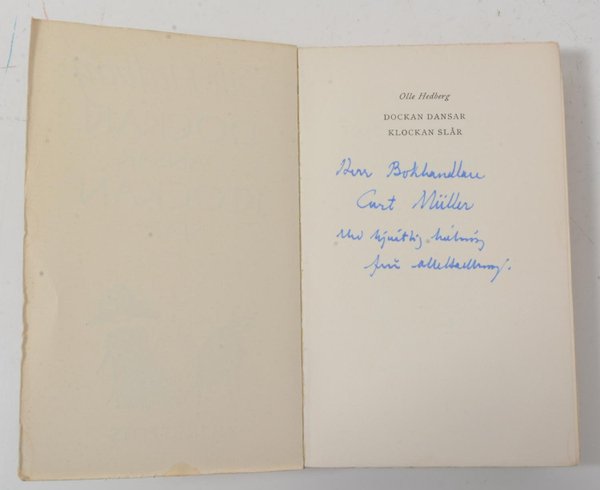 Olle Hedberg
DOCKAN DANSAR
KLOCKAN SLÅR
Herr Bokhandlare
Curt Müller
Med hjärtlig hälsning
från Olle Hedberg.